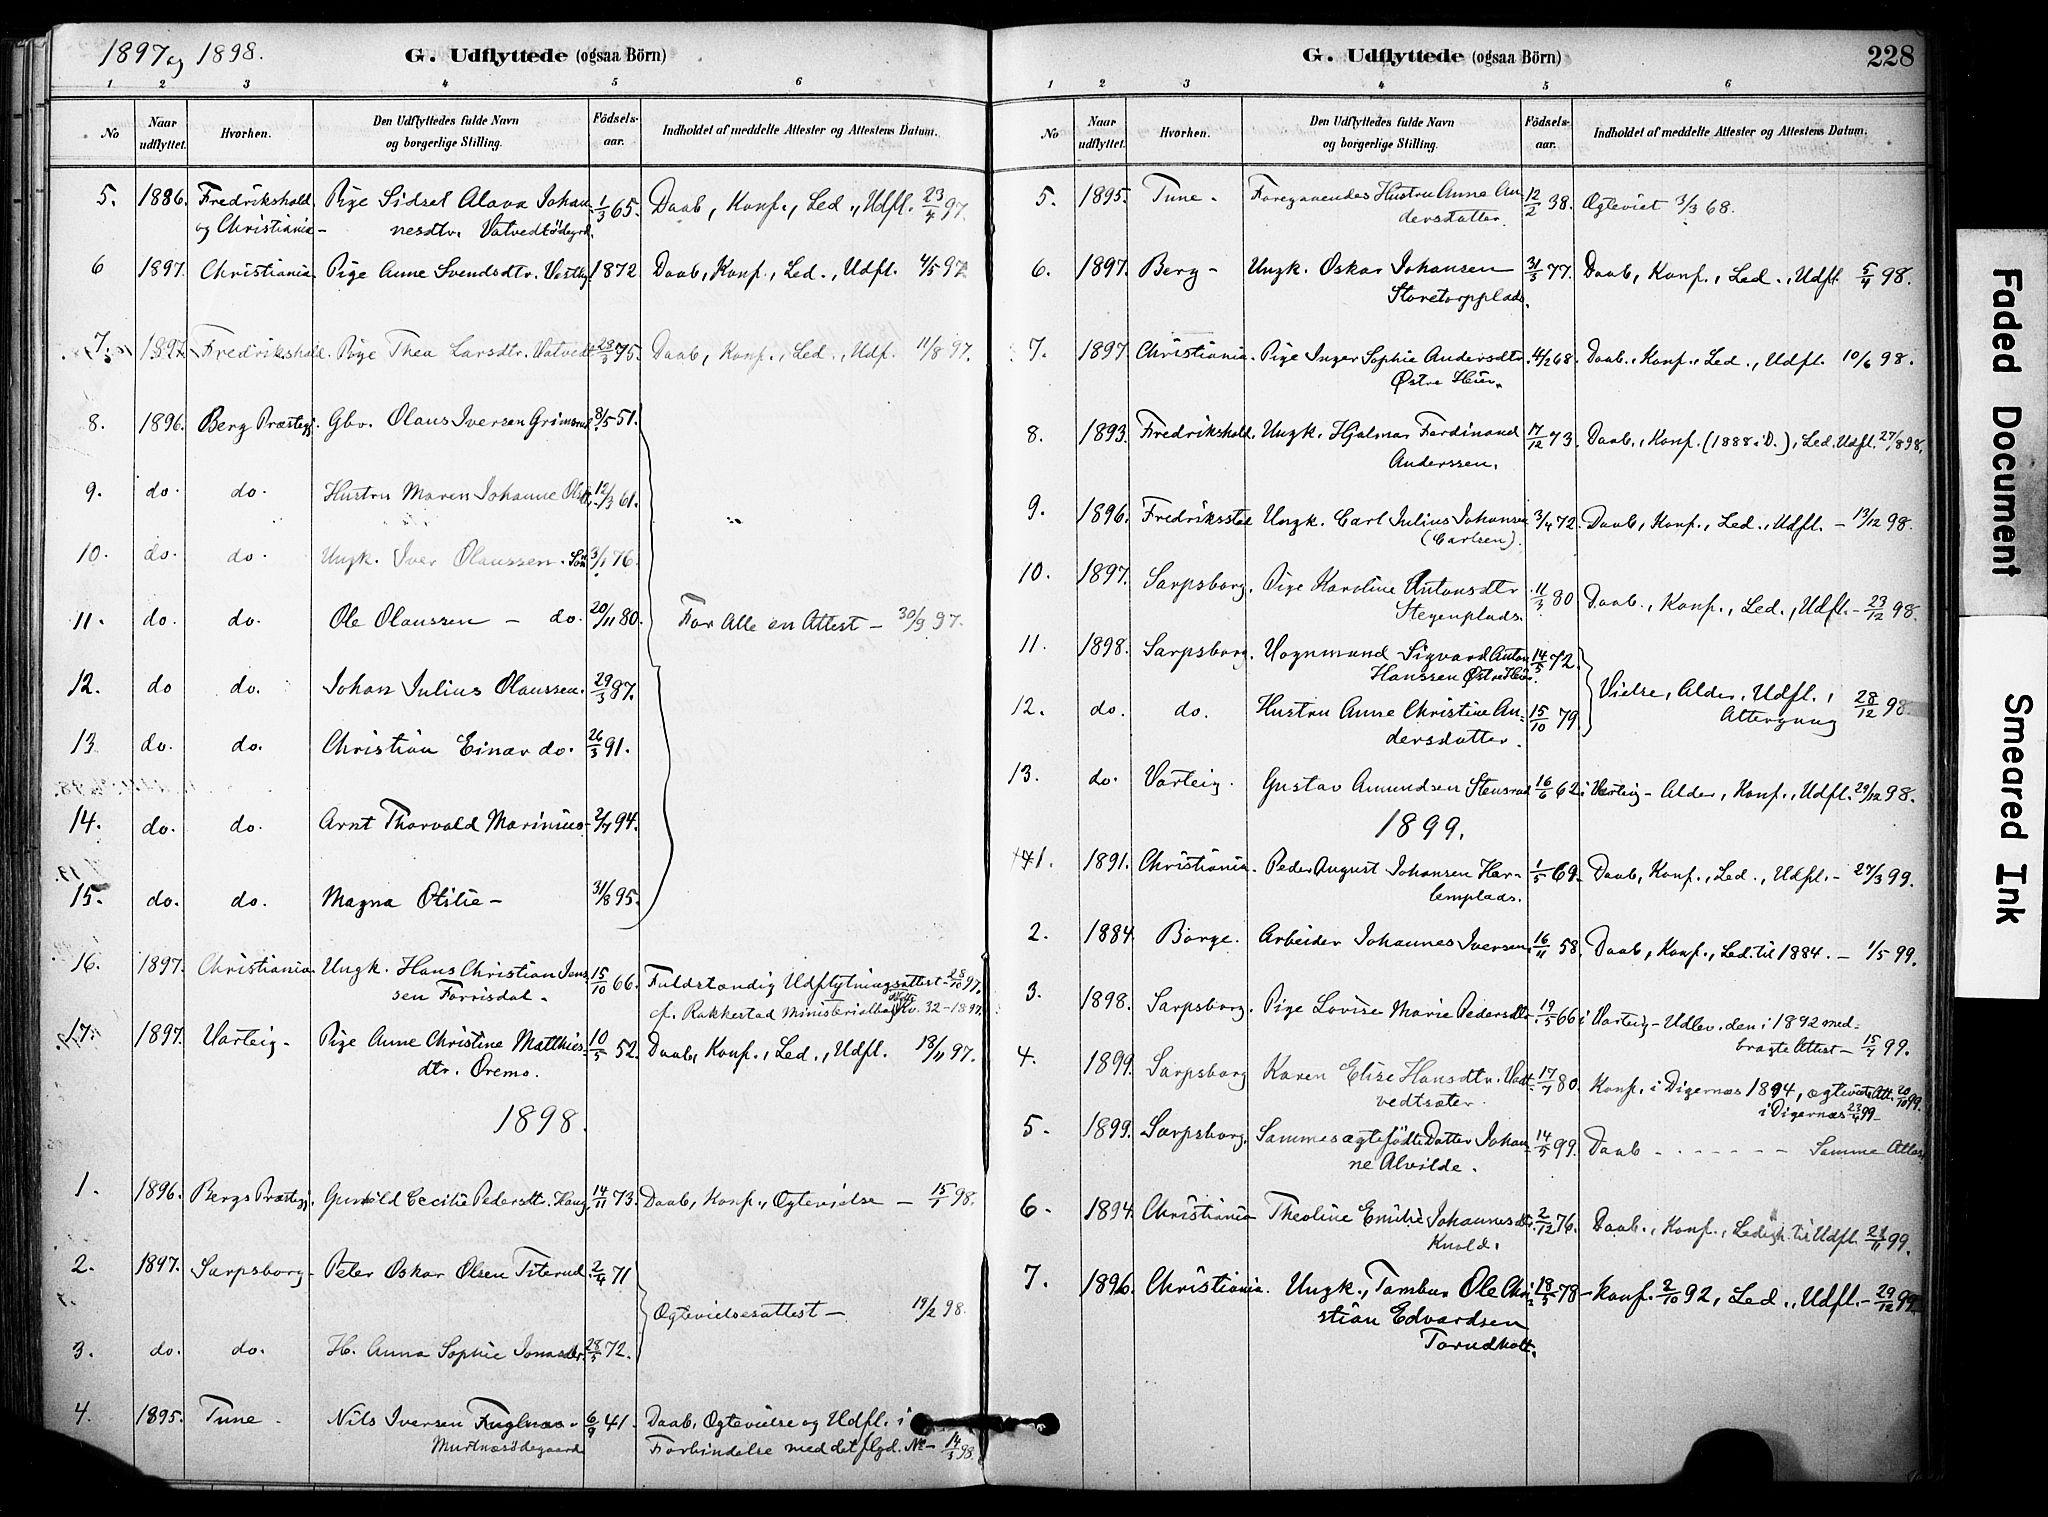 1897 og 1898.
G. Udflyttede (ogsaa Börn)
1 2 3 4 5 6
No
Naar udflyttet.
Hvorhen.
Den Udflyttedes fulde Navn og borgerlige Stilling.
Födsels-aar.
Indholdet af meddelte Attester og Attestens Datum.
5. 1886. Fredrikshald Pige Sidsel Alava Johan- 1/3 65. Daab, Konf., Led., Udfl. 23/4 97.
og Christiania - nesdtr. Vatvedtödegrd.
6 1897. Christiania. Pige Anne Svendsdtr. 1872 Daab, Konf., Led., Udfl. 4/5 97.
7. 1897. Fredrikshald. Pige Thea Larsdtr. Vatvedt 28/3 75. Daab, Konf., Led., Udf. 11/8 97.
8. 1896. Berg Præstegj. Gbr. Olaus Iversen Grimsrud 8/5 51.
9. do. do. Hustru Maren Johanne Olsdtr. 12/3 61.
10. do. do. Ungk. Iver Olaussen. Sön 3/1 76.
11. do. do. Ole Olaussen - do. 20/11 80. For Alle en Attest - 30/9 97.
12. do do. Johan Julius Olaussen. 29/3 87.
13 do. do. Christian Einar do. 26/3 91.
14. do. do. Arnt Thorvald Marinius- 2/7 94.
15. do. do. Magna Otilie - 31/8 95.
16. 1897. Christiania. Ungk. Hans Christian Jens- 15/10 66. Fuldstændig Udflytningsattest - 28/10 97.
sen Forrisdal - cf. Rakkestad Ministerialbog No. 32 - 1897.
17. 1897. Varteig - Pige Anne Christine Matthies- 10/5 52. Daab, Konf., Led., Udfl. 18/11 97.
dtr. Oremo.
1898.
1. 1896. Bergs Præstegj. Gunild Cecilie Pedersdt. Haug 14/11 73. Daab, Konf., Ogtevielse - 15/1 98.
2. 1897. Sarpsborg - Peter Oskar Olsen Titerud. 2/4 71
Ogtevielsesattest - 19/2 98.
3. do. do. H. Anna Sophie Jonasdtr. 28/5 72.
4. 1895. Tune - Nils Iversen Fuglnæs - 6/9 41. Daab, Ogtevielse og Udfl. i
Murtnæsödegaard Forbindelse med det flgd. No - 14/3 98.
G. Udflyttede (ogsaa Börn)
228
1 2 3 4 5 6
No
Naar udflyttet.
Hvorhen.
Den Udflyttedes fulde Navn og borgerlige Stilling.
Födsels-aar.
Indholdet af meddelte Attester og Attestens Datum.
5. 1895. Tune - Foregaaendes Hustru Anne An- 12/2 38. Ogteviet 3/3 68.
dersdatter.
6. 1897. Berg - Ungk. Oskar Johansen 31/3 77. Daab, Konf., Led., Udfl. 5/4 98.
Storetorpplads.
7. 1897. Christiania. Pige Inger Sophie Andersdtr. 4/2 68. Daab, Konf., Led., Udfl. 10/6 98.
Østre Heier.
8. 1893. Fredrikshald. Ungk. Hjalmar Ferdinand 17/12 73. Daab., Konf. (1888 i D.), Led. Udfl. 27/8 98.
Anderssen.
9. 1896. Fredriksstad Ungk. Carl Julius Johansen 3/4 72. Daab, Konf., Led., Udfl. - 13/12 98.
(Carlsen).
10. 1897. Sarpsborg. Pige Karoline Antonsdtr 11/3 80 Daab., Konf., Led., Udfl. - 23/12 98.
Stegenplads.
11. 1898. Sarpsborg. Vognmand Sigvard Anton 14/5 72.
Hanssen Østre Heier Vielse, Alder, Udfl.,
12. do. do. Hustru Anne Christine An- 15/10 79 Attergang 28/12 98.
dersdatter.
13. do. Varteig. Gustav Amundsen Stensrud 16/6 62 i Varteig - Alder, Konf., Udfl. 29/12 98.
1899.
1. 1891. Christiania. Peder August Johansen Har- 1/5 69. Daab, Konf., Led., Udfl. - 27/3 99.
lemplads.
2. 1884. Borge. Arbeider Johannes Iversen. 16/11 58. Daab, Konf., Led. til 1884. - 1/5 99.
3. 1898. Sarpsborg. Pige Lovise Marie Pedersdtr. 19/5 66 i Varteig - Udlev. den i 1892 med-
bragte Attest - 15/7 99.
4. 1899. Sarpsborg Karen Elise Hansdtr. Vat- 17/7 80. Konf. i Digernæs 1894, ogteviet Att. 20/10 99.
vedtsæter. i Digernæs 23/4 99
5. 1899. Sarpsborg. Sammes ægtefödte Datter Johan- 14/5 99. Daab - - - - - - Samme Attest
ne Alvilde.
6. 1894. Christiania Theoline Emilie Johannesdtr. 2/12 76. Daab., Konf., Ledigh. til Udfl. 21/11 99.
Knold.
7. 1896. Christiania. Ungk., Tambur Ole Chri- 18/5 78 - Konf. 2/10 92, Led., Udfl. - 29/12 99.
stian Edvardsen
Torudholt.
Faded Document
Smeared Ink